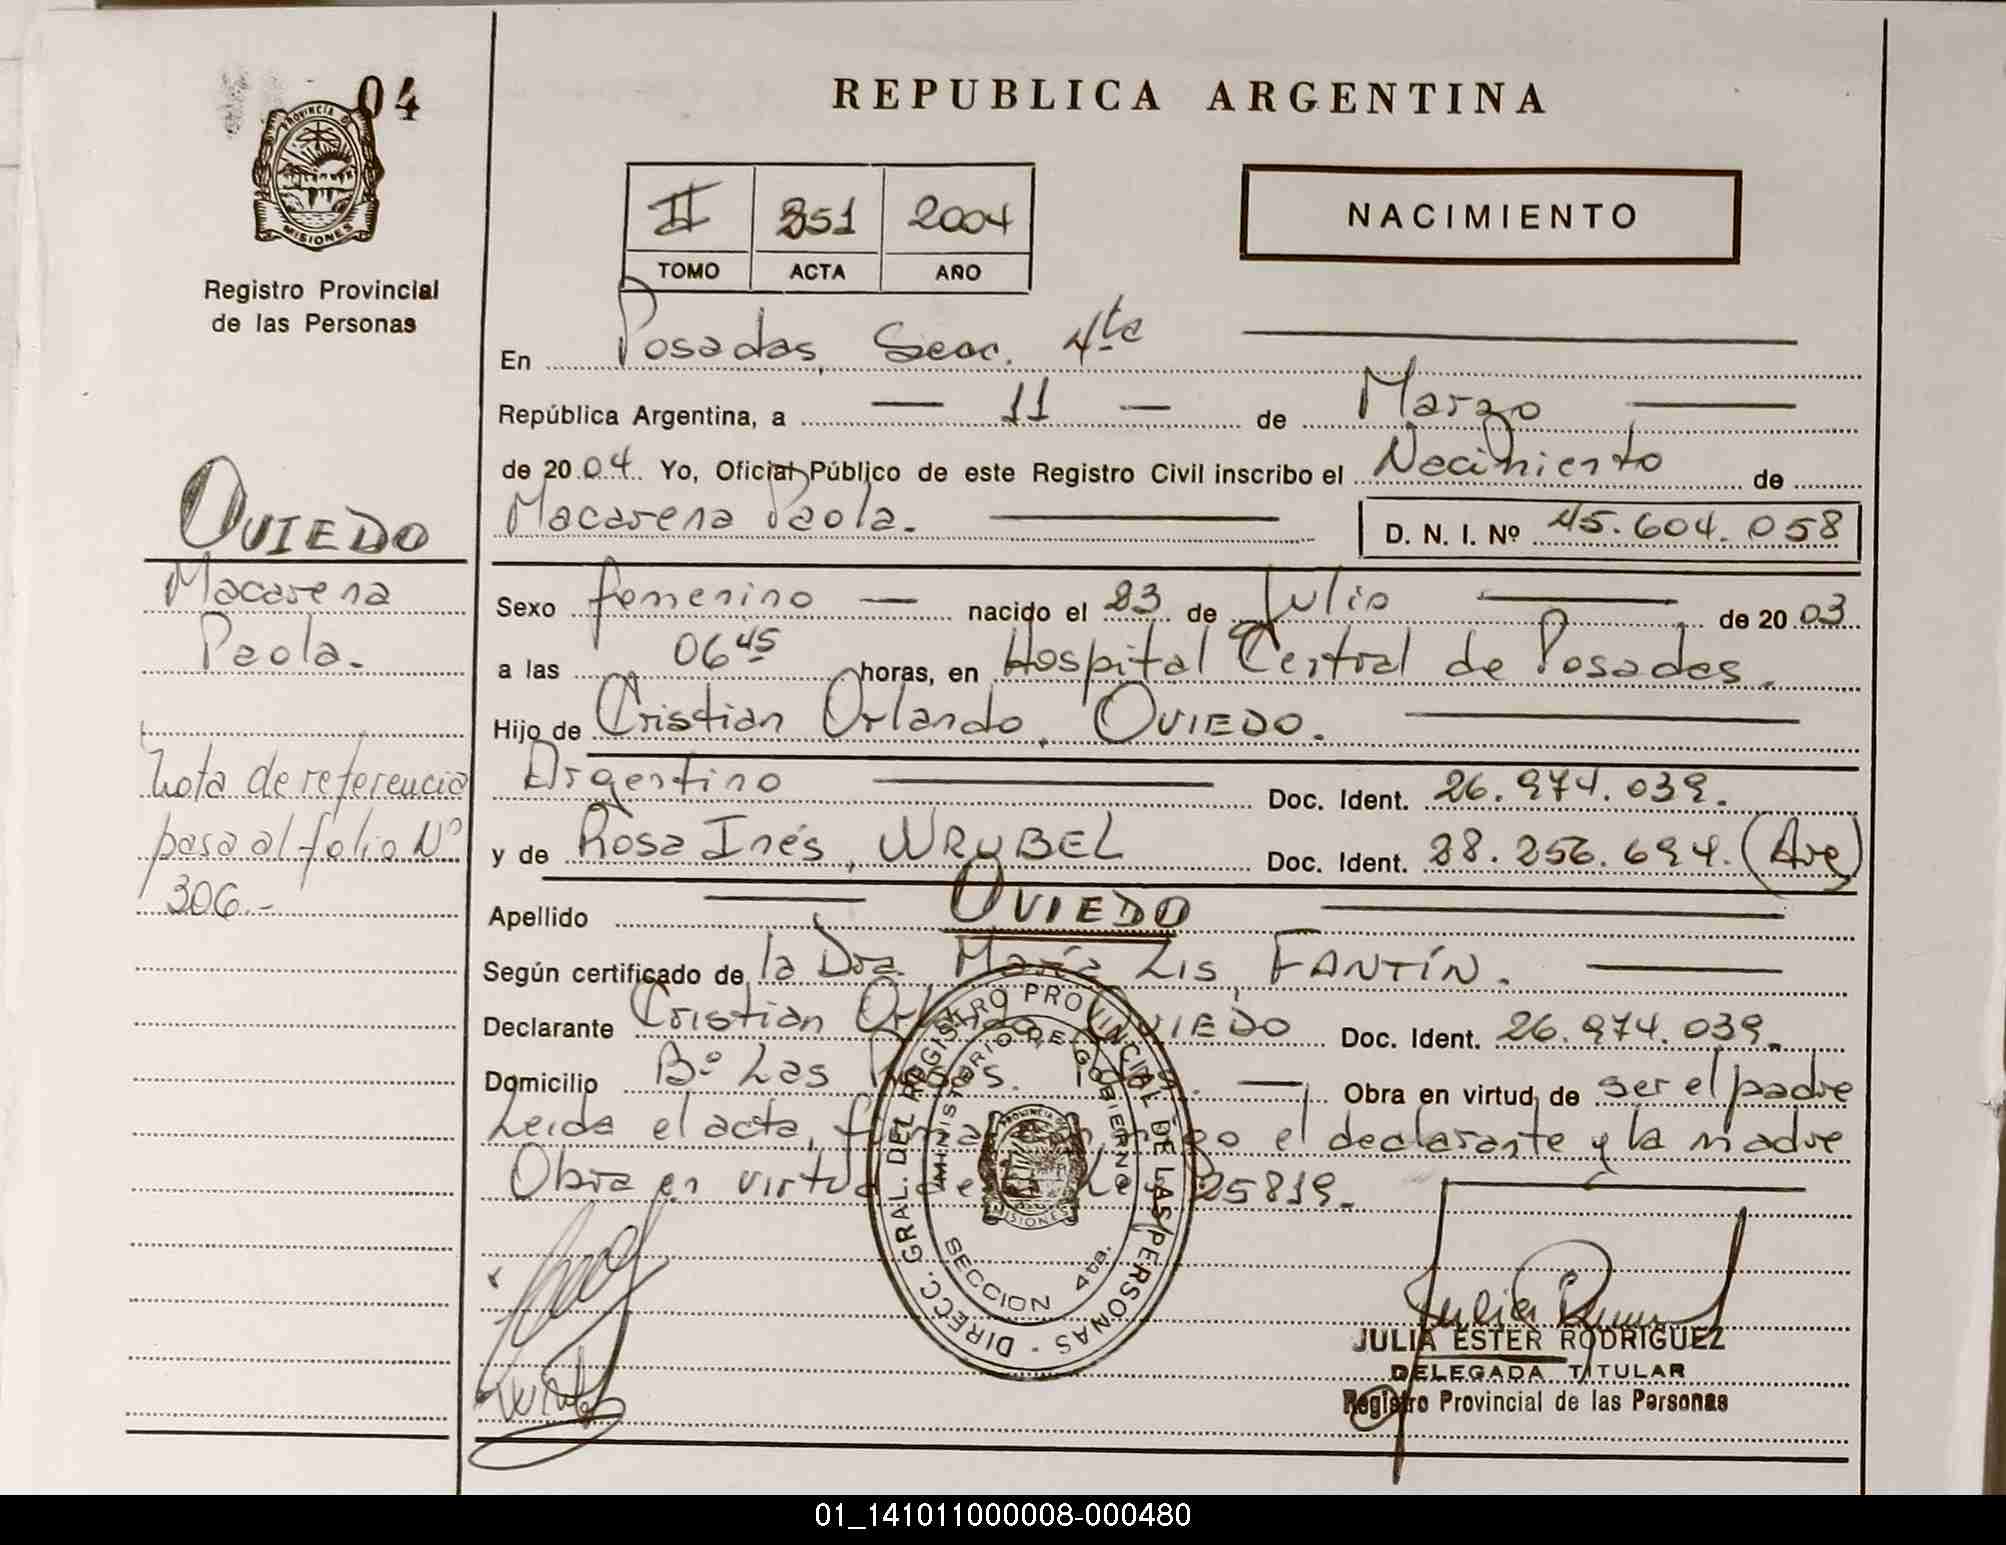 04
PROVINCIA DE
MISIONES
Registro Provincial
de las Personas
REPUBLICA ARGENTINA
II 351 2004
TOMO ACTA AÑO
NACIMIENTO
En Posadas, Secc. 4ta
República Argentina, a — 11 — de Marzo
de 2004. Yo, Oficial Público de este Registro Civil inscribo el Nacimiento de
Macarena Paola.
D. N. I. Nº 45.604.058
OVIEDO
Macarena
Paola.
Nota de referencia
pasa al folio Nº
306.-
Sexo femenino — nacido el 23 de Julio de 2003
a las 06 45 horas, en Hospital Central de Posadas.
Hijo de Cristian Orlando, OVIEDO.
Argentino Doc. Ident. 26.974.039.
y de Rosa Inés, WRUBEL Doc. Ident. 28.256.694. (Arg)
Apellido OVIEDO
Según certificado de la Dra. María Lis, FANTÍN.
Declarante Cristian Orlando OVIEDO Doc. Ident. 26.974.039.
Domicilio Bº Las — Obra en virtud de ser el padre
Leida el acta, el declarante y la madre
Obra en virtud de 25819.
DIRECC. GRAL. DEL REGISTRO PROVINCIAL DE LAS PERSONAS -
MINISTERIO DE GOBIERNO
PROVINCIA DE
MISIONES
SECCION 4ta.
JULIA ESTER RODRIGUEZ
DELEGADA TITULAR
Registro Provincial de las Personas
01_141011000008-000480